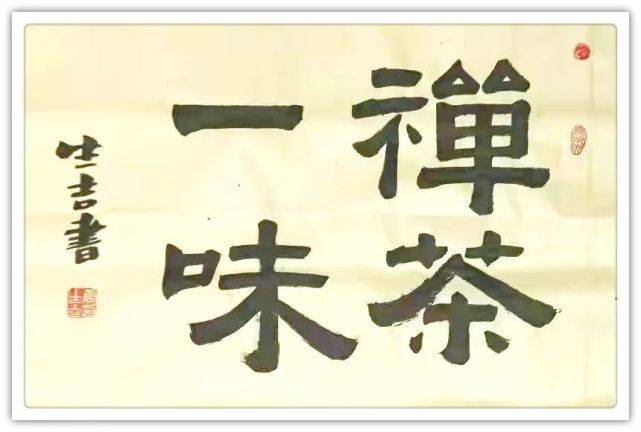 禪茶
一味
吉書